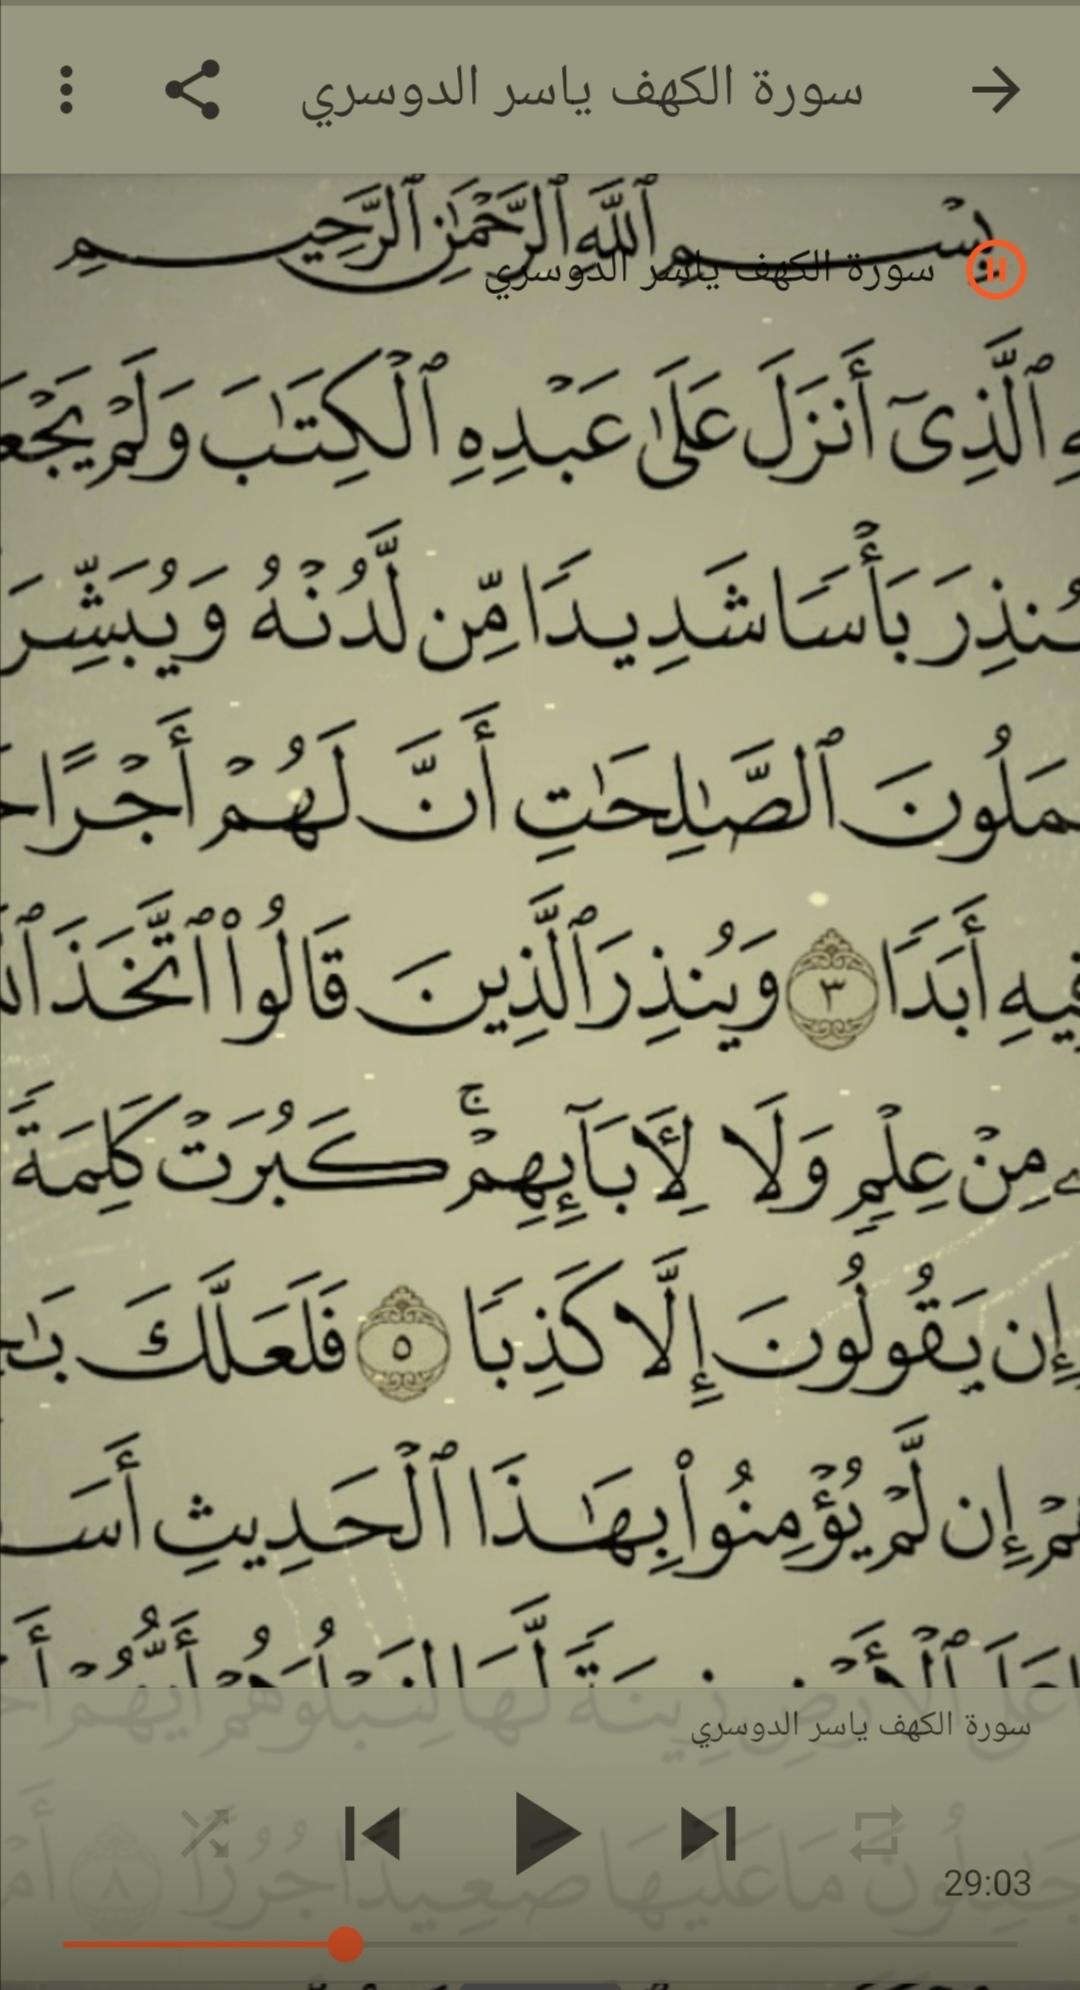 سورة الكهف ياسر الدوسري
بِسْمِ ٱللَّهِ ٱلرَّحْمَٰنِ ٱلرَّحِيمِ
سورة الكهف ياسر الدوسري
ٱلَّذِىٓ أَنزَلَ عَلَىٰ عَبْدِهِ ٱلْكِتَٰبَ وَلَمْ يَجْعَ
ُنذِرَ بَأْسًا شَدِيدًا مِّن لَّدُنْهُ وَيُبَشِّرَ
مَلُونَ ٱلصَّٰلِحَٰتِ أَنَّ لَهُمْ أَجْرًا حَ
فِيهِ أَبَدًا ٣ وَيُنذِرَ ٱلَّذِينَ قَالُوا۟ ٱتَّخَذَ ٱل
مِنْ عِلْمٍ وَلَا لِأَبَآئِهِمْ ۚ كَبُرَتْ كَلِمَةً
إِن يَقُولُونَ إِلَّا كَذِبًا ٥ فَلَعَلَّكَ بَٰخِ
هِمْ إِن لَّمْ يُؤْمِنُوا۟ بِهَٰذَا ٱلْحَدِيثِ أَسَ
عَلَى ٱلْأَرْضِ زِينَةً لَّهَا لِنَبْلُوَهُمْ أَيُّهُمْ أَحْ
سورة الكهف ياسر الدوسري
جَٰعِلُونَ مَا عَلَيْهَا صَعِيدًا جُرُزًا ٨ أَمْ
29:03